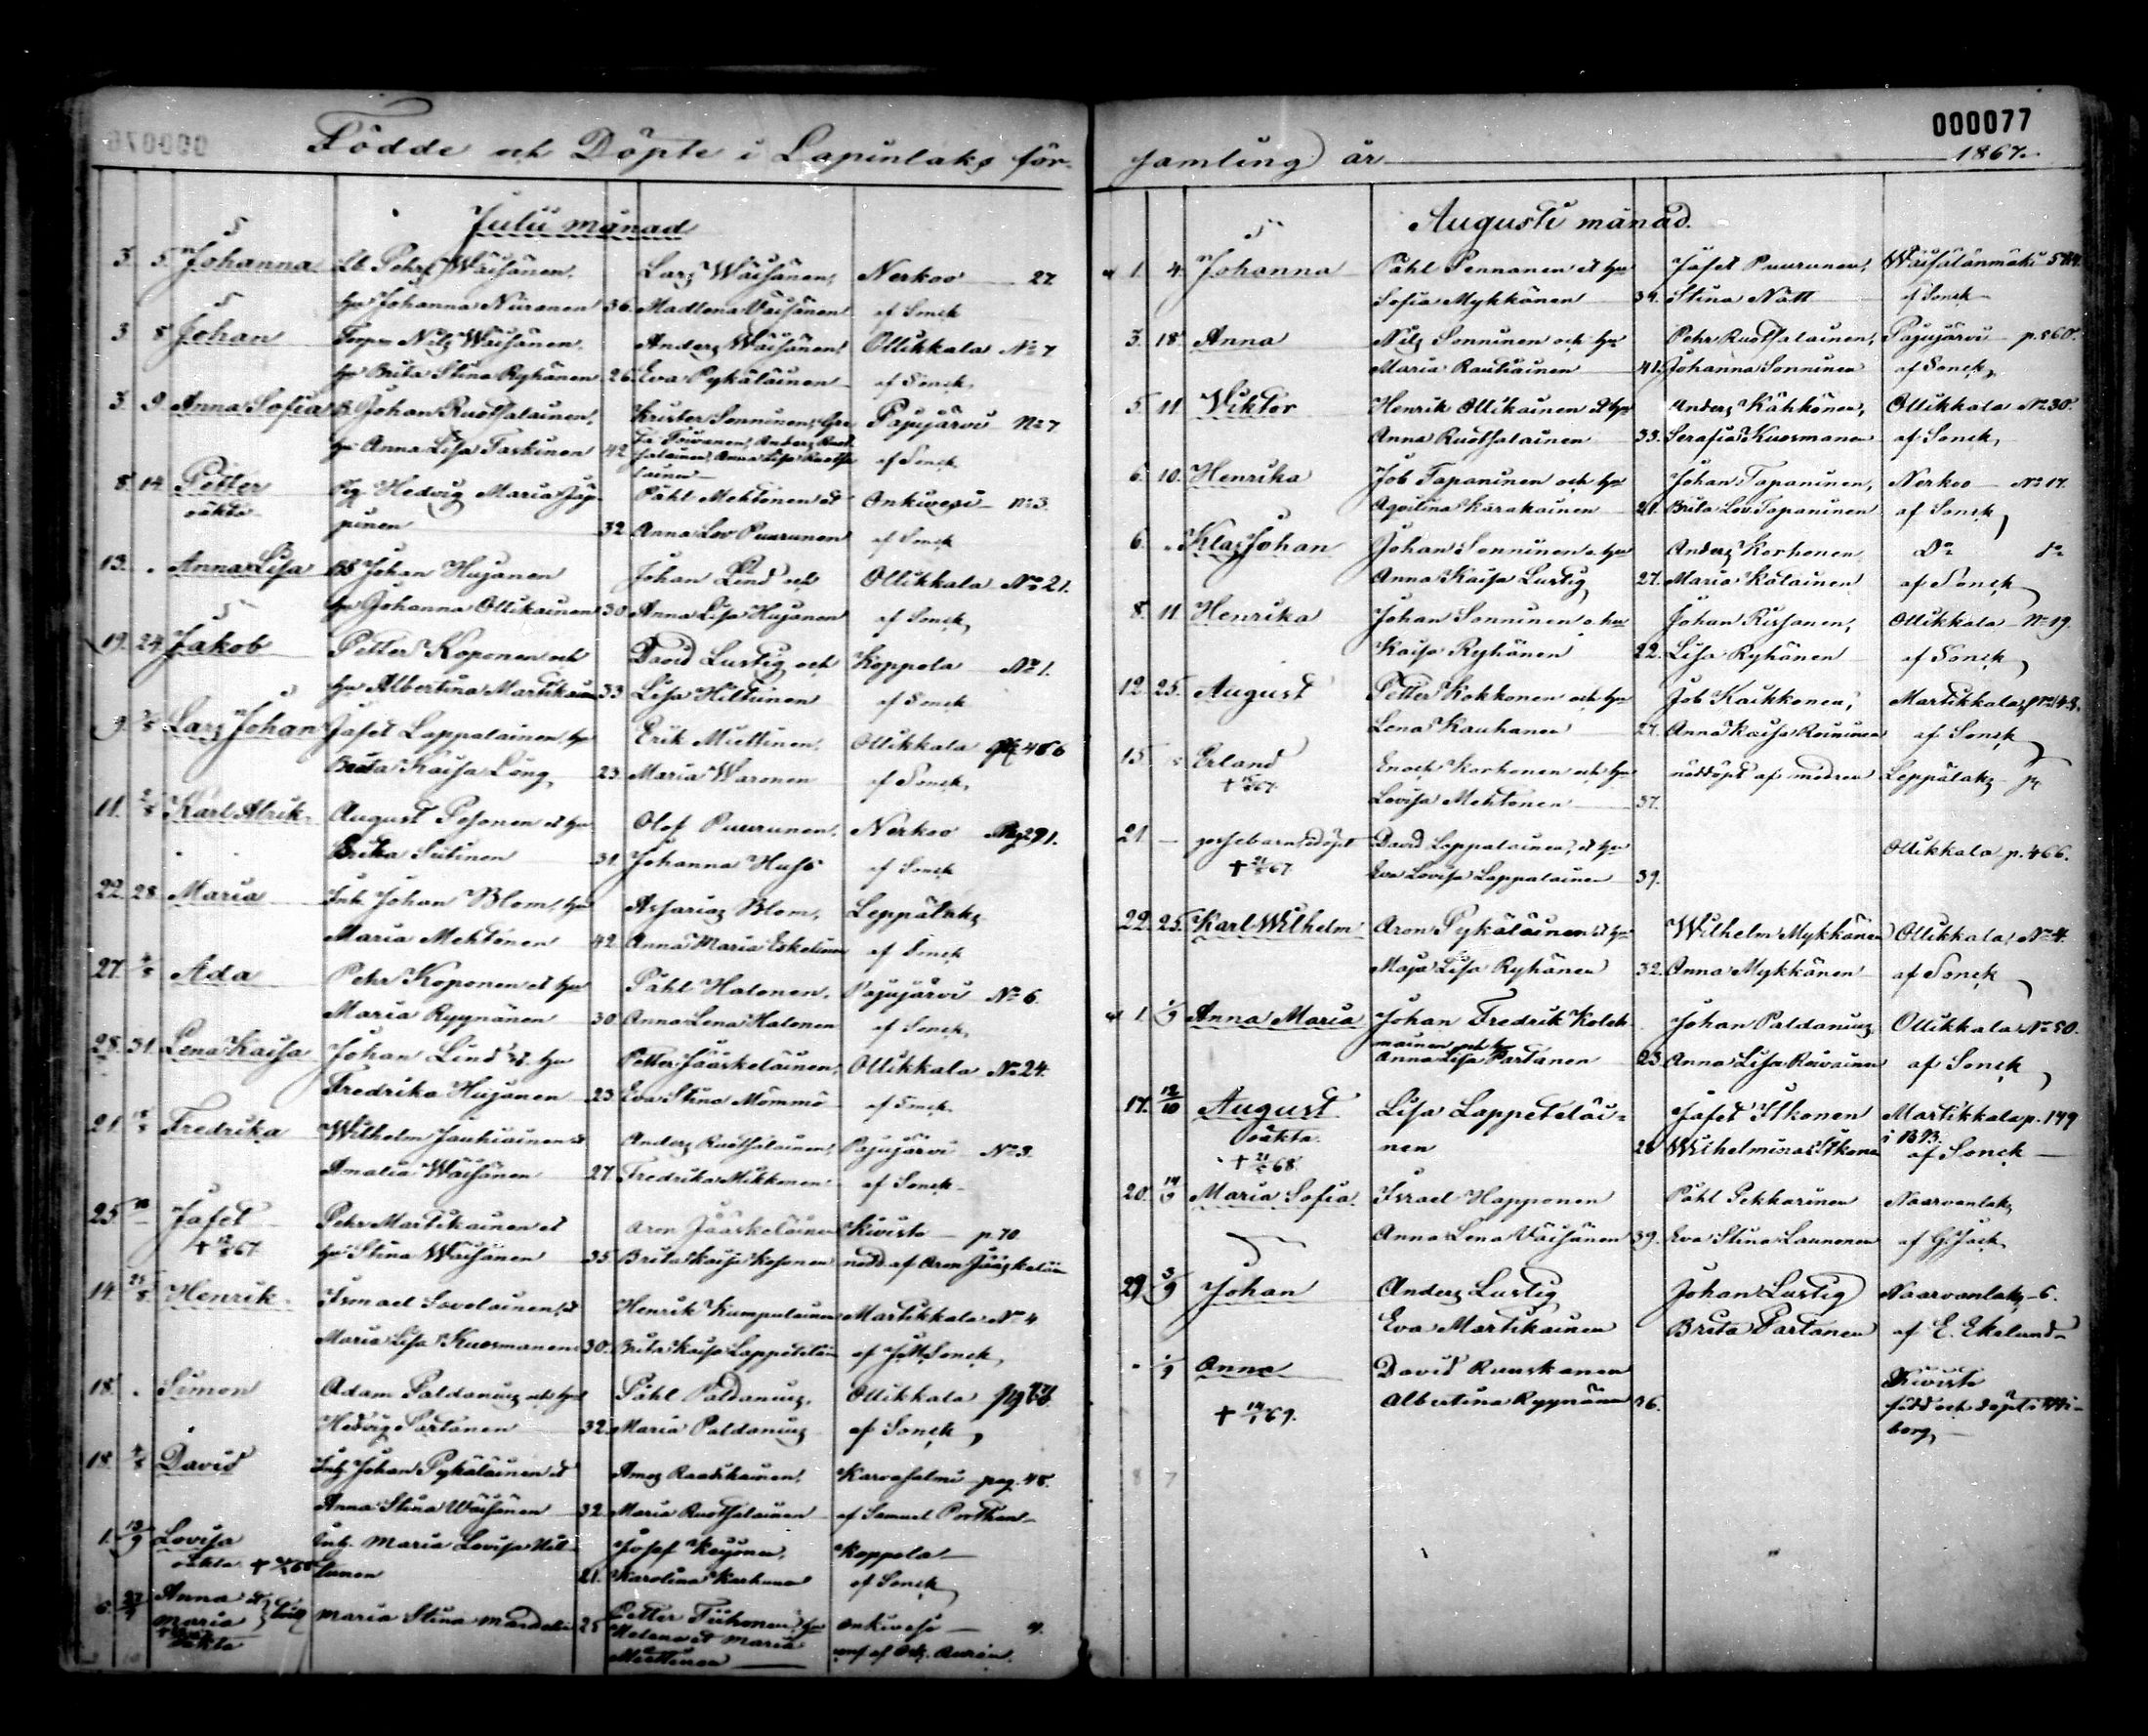 000077
Födde och Döpte i Lapinlaks för-
samling år 1867.
Julii månad
3. 5. Johanna Lb. Pehr Wäisänen, Lars Wäisänen, Nerkoo 27
hu Johanna Niiranen 36. Madlena Väisänen af Sonck
3 8 Johan Torp. Nils Wäisänen, Anders Wäisänen, Ollikkala No 7
hu Brita Stina Ryhänen 26. Eva Pykäläinen af Sonck
3. 9. Anna Sofia B. Johan Ruotsalainen, Krister Sonninen, Pajujärvi No 7
hu Anna Lisa Taskinen 42 Toivanen, Anders Ruot-
salainen, Anna Lisa Ruotsa- af Sonck
lainen
8. 14. Petter Pig. Hedvig Maria Jäp- Påhl Mehtonen et Onkivesi No 3.
oäkta pinen 32 Anna Lov Puurunen af Sonck
13. Anna Lisa Johan Hujanen Johan Lind och Ollikkala No 21.
hu Johanna Ollikainen 30 Anna Lisa Hujanen af Sonck
19. 24 Jakob Petter Koponen och David Lustig och Koppola No 1.
hu Albertina Martikainen 33 Lisa Hiltunen af Sonck
9. Lars Johan Jafet Lappalainen, hu Erik Miettinen, Ollikkala 466
Brita Kaisa Lång 23. Maria Waronen af Sonck
11. 2/8 Karl Alrik August Pesonen et hu Olof Puurunen, Nerkoo 291.
Erika Sutinen 31. Johanna Huss af Sonck
22. 28. Maria Inh. Johan Blom, hu Assarias Blom, Leppälaks
Maria Mehtonen 42 Anna Maria Eskelinen af Sonck
27. 4/8 Ada Pehr Koponen et hu Påhl Halonen, Pajujärvi No 6.
Maria Ryynänen 30. Anna Lena Halonen af Sonck
28. 31. Lena Kaisa Johan Lind et hu Petter Jääskeläinen, Ollikkala No 24.
Fredrika Hujanen 23 Eva Stina Mömmö af Sonck
21. 18/8 Fredrika Wilhelm Jauhiainen et Anders Ruotsalainen, Pajujärvi No 3.
Amalia Wäisänen 27 Fredrika Mikkonen af Sonck
25 Jafet Pehr Martikainen et Aron Jääskeläinen Kivistö p. 70
hu Stina Wäisänen 35. Brita Kaisa Kosonen nödd. af Aron Jääskeläi-
14. 25/8 Henrik Ismael Savolainen, et Henrik Kumpulainen Martikkala No 4
Maria Lisa Kuosmanen 30. Brita Kaisa Lappeteläin af J. M. Sonck
18. Simon Adam Paldanius och hu Påhl Paldanius, Ollikkala
Hedvig Partanen 32. Maria Paldanius af Sonck
18. 4/8 David Inh. Johan Pykäläinen et Amos Raatikainen, Karvasalmi pag. 48.
Anna Stina Wäisänen 32. Maria Ruotsalainen af Samuel Porthan
1. 13/9 Lovisa Inh. Maria Lovisa Hil- Josef Keyonen, Koppola
oäkta tunen 21. Karolina Karhunen af Sonck
6. Anna et
Maria Maria Stina Mandelin 25 Petter Tiihonen, hu Onkivesi 4.
oäkta Helena et Maria
Miettinen
Augusti månad.
1. 4. Johanna Påhl Pennanen et hu Jafet Puurunen, Väisälänmäki
Sofia Mykkänen 34. Stina Nätt af Sonck
3. 18. Anna Nils Sonninen och hu Pehr Ruotsalainen, Pajujärvi p. 860.
Maria Rautiainen 41. Johanna Sonninen af Sonck
5. 11 Viktor Henrik Ollikainen et hu Anders Kähkönen, Ollikkala No 30.
Anna Ruotsalainen 33. Serafia Kuosmanen af Sonck
6. 10. Henrika Job Tapaninen och hu Johan Tapaninen, Nerkoo No 17.
Aqvilina Karakainen 21. Brita Lov. Tapaninen af Sonck
6. Klas Johan Johan Sonninen o. hu Anders Korhonen Do do
Anna Kaisa Lustig 27. Maria Kälainen af Sonck
8. 11 Henrika Johan Sonninen o. hu Johan Rissanen, Ollikkala No 19.
Kaisa Ryhänen 22. Lisa Ryhänen af Sonck
12. 25. August Petter Kokkonen och hu Job Kaikkonen, Martikkala
Lena Kauhanen 27. Anna Kaisa Roininen af Sonck
15. Erland Enoch Korhonen och hu nöddöpt af modren Leppälaks
Lovisa Mehtonen 37.
21 — gossebarn David Lappalainen, et hu Ollikkala p. 466.
Eva Lovisa Lappalainen 39.
22. 25. Karl Wilhelm Aron Pykäläinen et hu Wilhelm Mykkänen Ollikkala, No 4.
Maja Lisa Ryhänen 32. Anna Mykkänen af Sonck
1. 1/9 Anna Maria Johan Fredrik Koleh- Johan Paldanius Ollikkala No 50.
mainen och hu
Anna Lisa Partanen 23 Anna Lisa Roivainen af Sonck
17. 12/10 August Lisa Lappeteläi- Jafet Itkonen Martikkala p. 149
oäkta nen 28 Wilhelmina Itkonen af Sonck
20. Maria Sofia Israel Happonen Påhl Pekkarinen Naarvanlaks
Anna Lena Väisänen 39. Eva Stina Launonen
29 3/9 Johan Anders Lustig Johan Lustig Naarvanlaks 6.
Eva Martikainen Brita Partanen af E. Ekelund
1/9 Anna David Ruuskanen Kivistö
† 14/1 69. Albertina Ryynänen 26. född och döpt i Wi-
borg